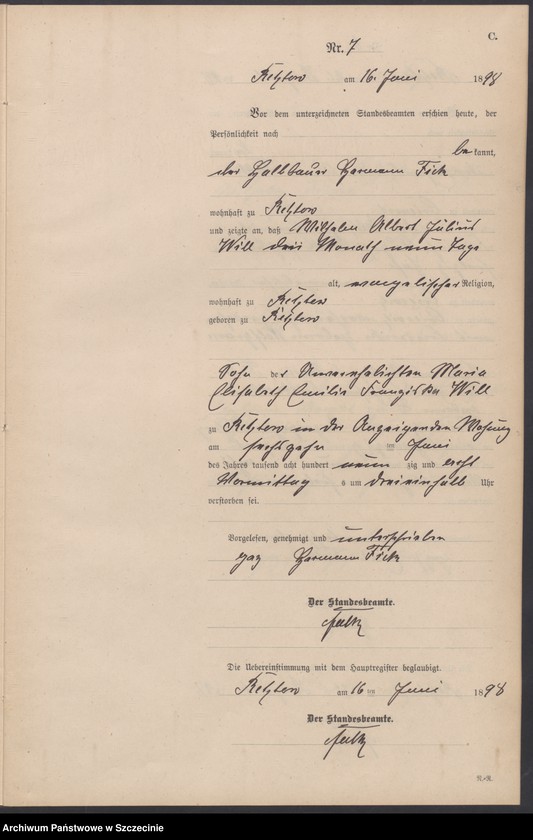 C.
Nr. 7
Retztow am 16. Juni 1898
Vor dem unterzeichneten Standesbeamten erschien heute, der
Persönlichkeit nach
bekannt,
der Halbbauer Hermann Fick
wohnhaft zu Retztow
und zeigte an, daß Wilhelm Albert Julius
Will drei Monath neun Tage
alt, evangelischer Religion,
wohnhaft zu Retztow
geboren zu Retztow
Sohn der Unverehelichten Maria
Elisabeth Emilie Franziska Will
zu Retztow in der Anzeigenden Wohnung
am sechszehn im Juni
des Jahres tausend acht hundert neun zig und acht
Vormittag s um dreieinhalb Uhr
verstorben sei.
Vorgelesen, genehmigt und unterschrieben
gez Hermann Fick
Der Standesbeamte.
Die Uebereinstimmung mit dem Hauptregister beglaubigt.
Retztow am 16 ten Juni 1898
Der Standesbeamte.
Archiwum Państwowe w Szczecinie